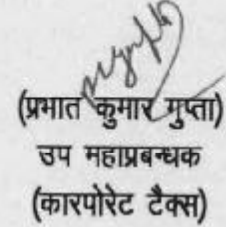 (प्रभात कुमार गुप्ता)
उप महाप्रबन्धक
(कारपोरेट टैक्स)